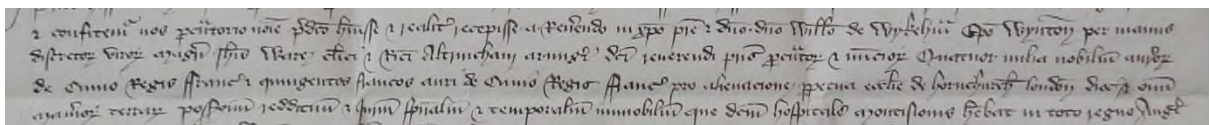 & confitemur nos procuratorio nomine predicto habuisse & realiter recepisse a Reverendo in xpo patre & dno dno Willo de Wykeham Epo Wynton per manus
discretor viror magistri Johis Ware clici & Rici Altrincham armigeri dicti reverendi patris procurator & nuncior Quatuor milia nobilium auror
de Cunio Regis ffranc & quingentos francos auri de Cunio Regis ffranc pro alienacione perpetua ecclie de hornchurch london dioc & omnium
manerior terrar possessionum reddituum & iurium spualium & temporalium immobilium que dictum hospitale Montisiovis habebat in toto regno Angl